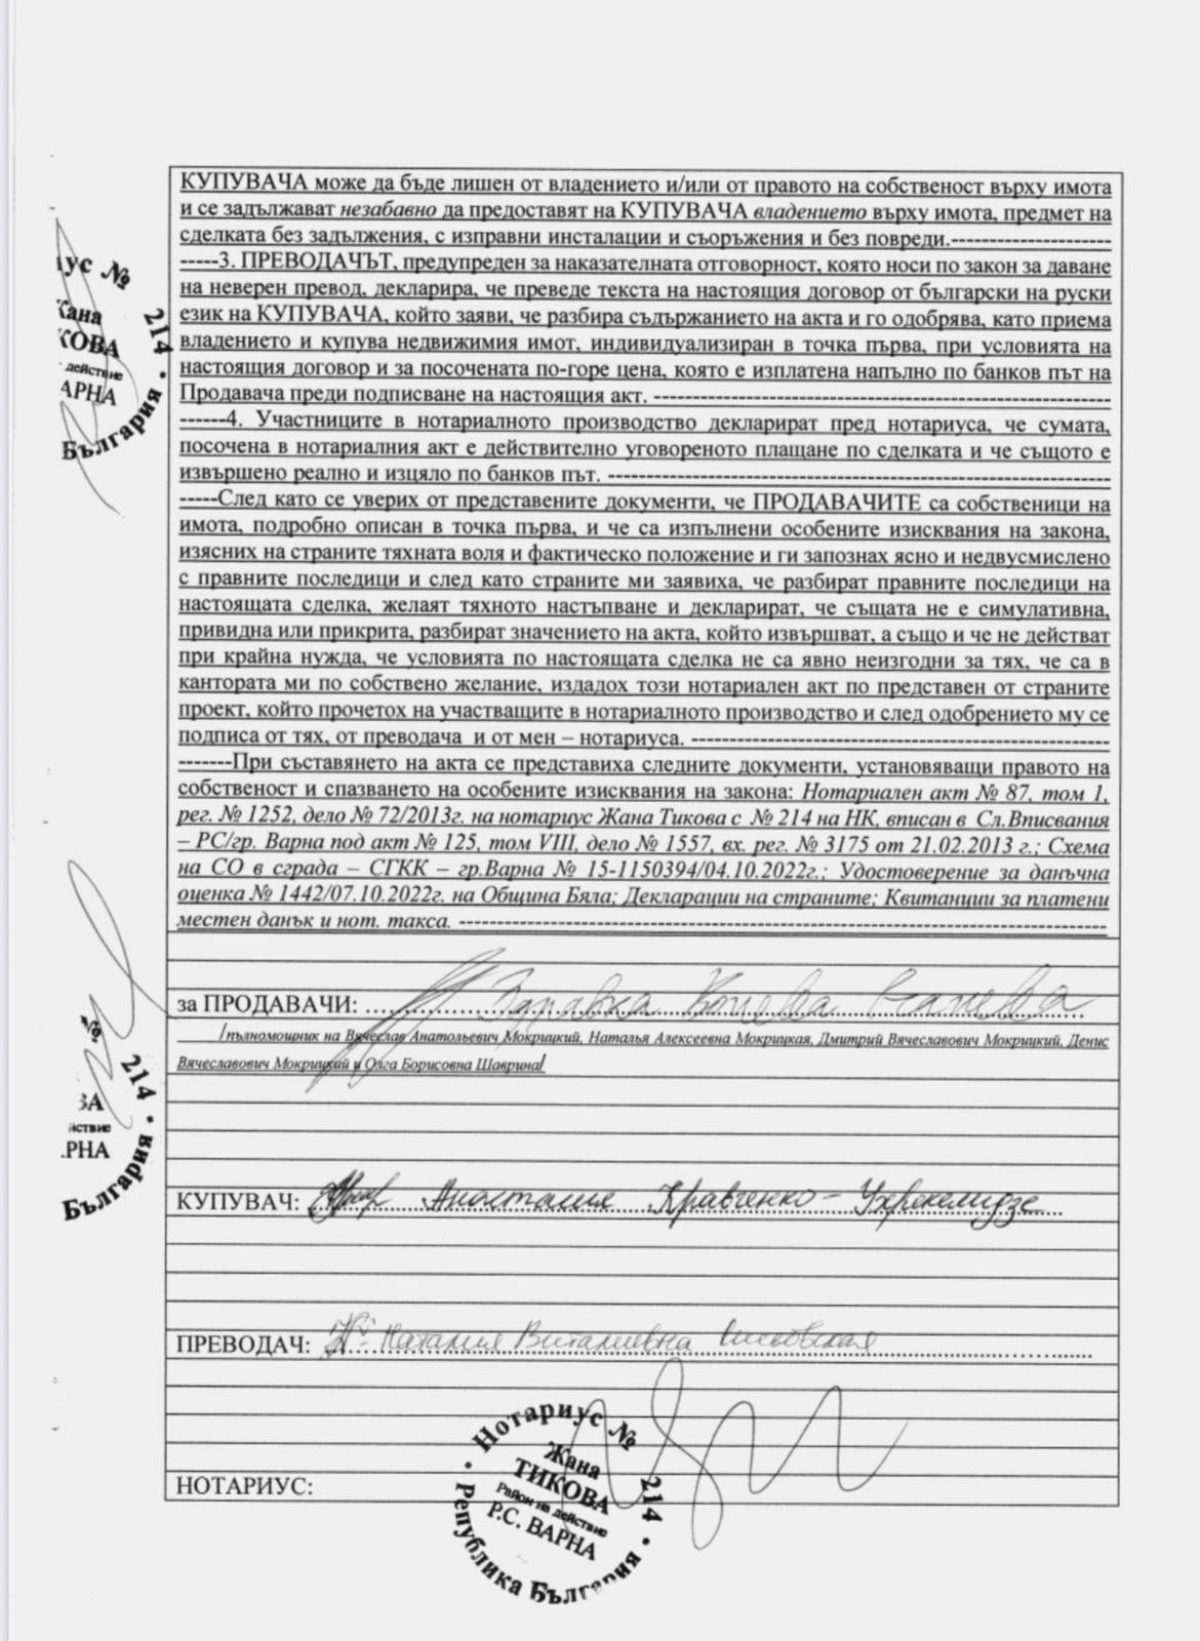 КУПУВАЧА може да бъде лишен от владението и/или от правото на собственост върху имота
и се задължават незабавно да предоставят на КУПУВАЧА владението върху имота, предмет на
сделката без задължения, с изправни инсталации и съоръжения и без повреди.-----------------------
-----3. ПРЕВОДАЧЪТ, предупреден за наказателната отговорност, която носи по закон за даване
на неверен превод, декларира, че преведе текста на настоящия договор от български на руски
език на КУПУВАЧА, който заяви, че разбира съдържанието на акта и го одобрява, като приема
владението и купува недвижимия имот, индивидуализиран в точка първа, при условията на
настоящия договор и за посочената по-горе цена, която е изплатена напълно по банков път на
Продавача преди подписване на настоящия акт. -----------------------------------------------------------------
------4. Участниците в нотариалното производство декларират пред нотариуса, че сумата,
посочена в нотариалния акт е действително уговореното плащане по сделката и че същото е
извършено реално и изцяло по банков път. ------------------------------------------------------------------------
-----След като се уверих от представените документи, че ПРОДАВАЧИТЕ са собственици на
имота, подробно описан в точка първа, и че са изпълнени особените изисквания на закона,
изясних на страните тяхната воля и фактическо положение и ги запознах ясно и недвусмислено
с правните последици и след като страните ми заявиха, че разбират правните последици на
настоящата сделка, желаят тяхното настъпване и декларират, че същата не е симулативна,
привидна или прикрита, разбират значението на акта, който извършват, а също и че не действат
при крайна нужда, че условията по настоящата сделка не са явно неизгодни за тях, че са в
кантората ми по собствено желание, издадох този нотариален акт по представен от страните
проект, който прочетох на участващите в нотариалното производство и след одобрението му се
подписа от тях, от преводача и от мен – нотариуса. ------------------------------------------------------------
-------При съставянето на акта се представиха следните документи, установяващи правото на
собственост и спазването на особените изисквания на закона: Нотариален акт № 87, том 1,
рег. № 1252, дело № 72/2013г. на нотариус Жана Тикова с № 214 на НК, вписан в Сл.Вписвания
– РС/гр. Варна под акт № 125, том VIII, дело № 1557, вх. рег. № 3175 от 21.02.2013 г.; Схема
на СО в сграда – СГКК – гр.Варна № 15-1150394/04.10.2022г.; Удостоверение за данъчна
оценка № 1442/07.10.2022г. на Община Бяла; Декларации на страните; Квитанции за платени
местен данък и нот. такса. ---------------------------------------------------------------------------------------------
за ПРОДАВАЧИ: Здравка Колева Станева
/пълномощник на Вячеслав Анатольевич Мокрицкий, Наталья Алексеевна Мокрицкая, Дмитрий Вячеславович Мокрицкий, Денис
Вячеславович Мокрицкий и Олга Борисовна Шаврина/
КУПУВАЧ: Анастасия Кравченко-
ПРЕВОДАЧ: Наталия Виталиевна
НОТАРИУС:
Нотариус № 214
Жана
ТИКОВА
Район на действие
Р.С. ВАРНА
Република България
ус № 214
Жана
КОВА
действие
АРНА
България
№ 214
ВА
йствие
РНА
България